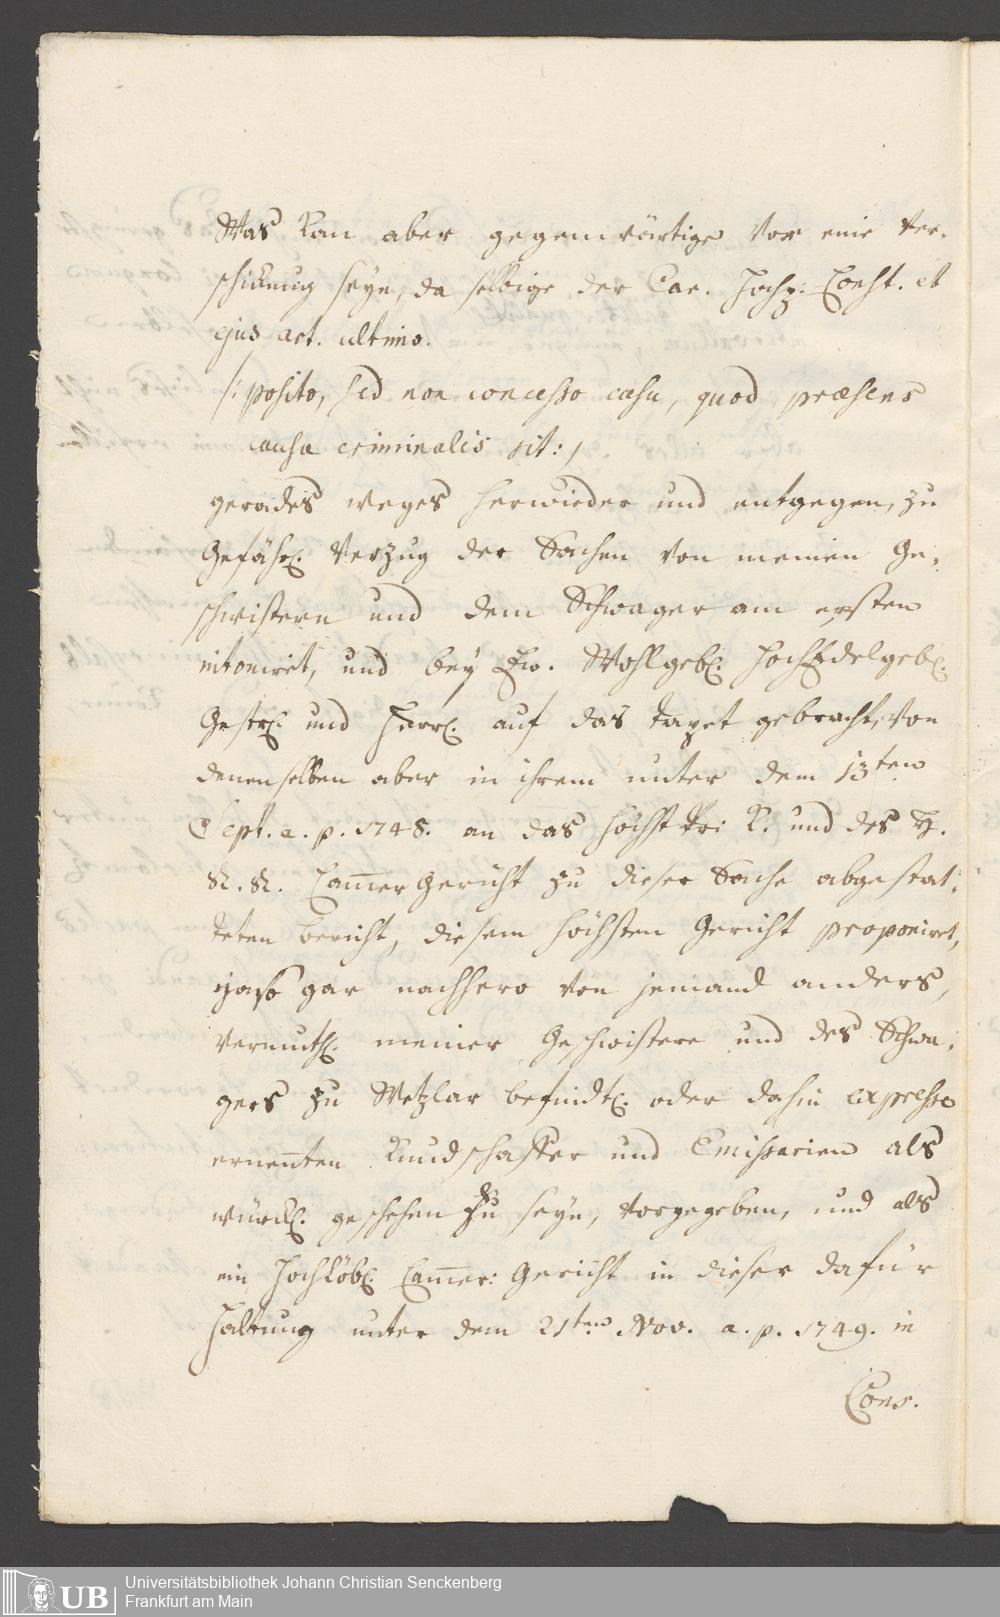 Was kan aber gegenwärtige vor eine Ver-
schickung seyn, da selbige der Car. Hochp: Const. et
ejus art. ultimo.
/: posito, sed non concesso casu, quod præsens
causa criminalis sit: /
gerades weges herwieder und entgegen, zu
Gefährl. Verzug der Sachen von meinen Ge-
schwistern und dem Schwager am ersten
intoniret, und bey Ew. Wohlgebl. HochEdelgebl.
Gestrl. und Herrl. auf das tapet gebracht, von
denenselben aber in ihrem unter dem 13ten
Sept. a. p. 1748. an das höchst K. und des H.
R. R. Cam̄er Gericht zu dieser Sache abgestat-
teten bericht, diesem höchsten Gericht proponiret,
ja so gar nachhero von jemand anders,
vermuthl. meiner Geschwistere und des Schwa-
gers zu Wetzlar befindtl. oder dahin expresse
ernen̄ten Kundschaffter und Emissarien als
würckl. geschehen zu seyn, vorgegeben, und als
ein Hochlöbl. Cam̄er: Gericht in dieser dafür
haltung unter dem 21ten Nov. a. p. 1749. in
Cons.
UB
Universitätsbibliothek Johann Christian Senckenberg
Frankfurt am Main